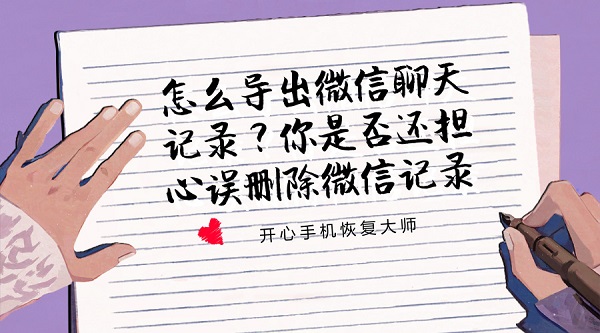 怎么导出微信聊天
记录？你是否还担
心误删除微信记录
开心手机恢复大师